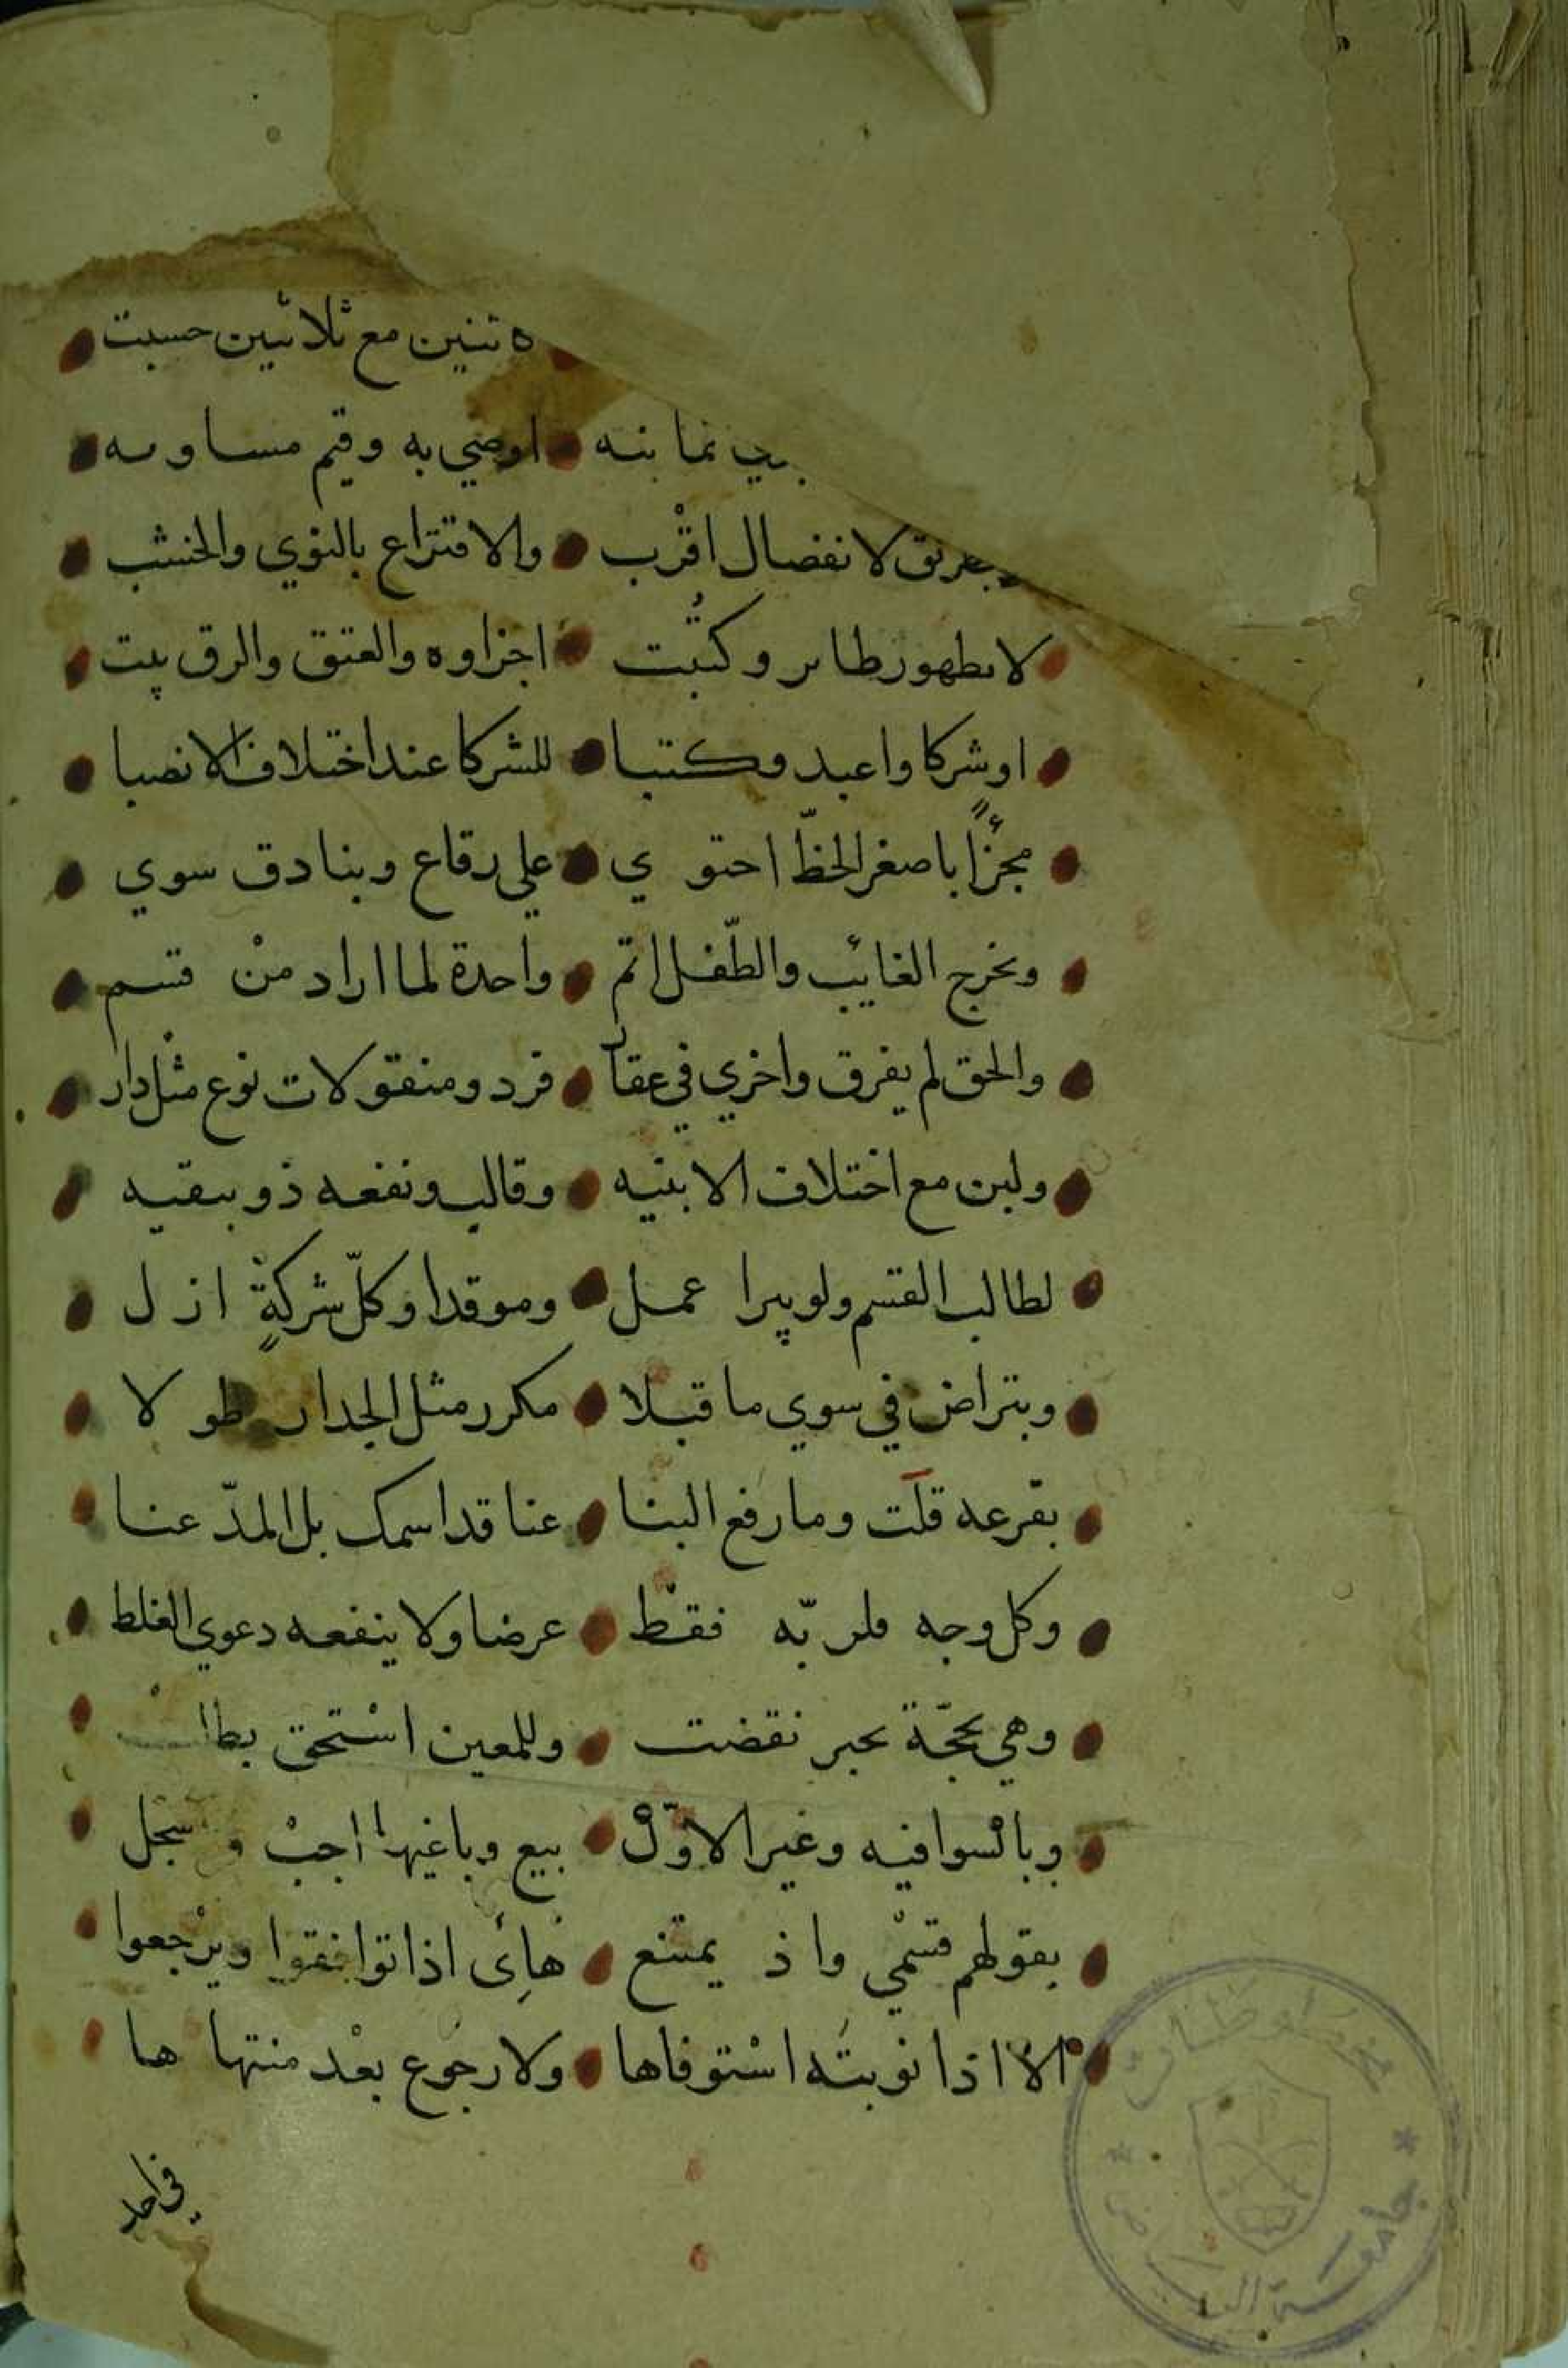 ه تنين مع ثلاثين حسبت
نما بنه اوصي به وقيم مساويه
لانفصال اقرب والاقتراع بالنوي والخشب
لا بطهور طاير وكتبت اجزاوه والعتق والرق يبت
او شركا واعبد وكتبا للشركا عند اختلاف الانصبا
مجزأ باصغر الحظ احتوي علي رقاع وبنادق سوي
ونخرج الغايب والطفل اتم واحدة لما اراد من قسم
والحق لم يفرق واخري في عقار فرد ومنقولات نوع مثل دار
ولبن مع اختلاف الابنيه وقالب ونفعه ذو بيقيه
لطالب القسم ولو بيرا عمل وموقدا وكل شركة ازل
وبتراض في سوي ما قبلا مكرر مثل الجدار طولا
بقرعه قلت وما رفع البنا عنا قدا سمك بل المد عنا
وكل وجه فلربه فقط عرضا ولا ينفعه دعوي الغلط
وهي بحجة بحبر نقضت وللمعين استحق
وبالسوا فيه وغير الاول بيع وباغيها اجب وسجل
بقولهم قسمي واذ يمتنع هائ اذا توافقوا ويرجعوا
الا اذا نوبته استوفاها ولا رجوع بعد منتهاها
في احد
جامعة الرياض